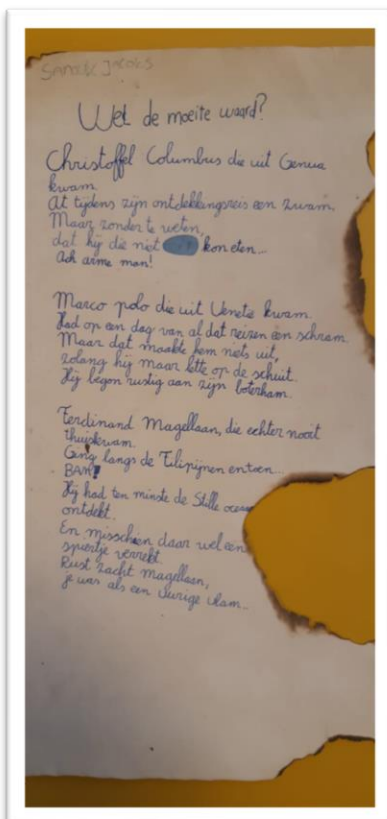 SANDER JACOBS
Wel de moeite waard?
Christoffel Columbus die uit Genua
kwam.
At tijdens zijn ontdekkingsreis een zwam.
Maar zonder te weten,
dat hij die niet kon eten...
Ach arme man!
Marco polo die uit Venetië kwam.
Had op een dag van al dat reizen een schram.
Maar dat maakte hem niets uit,
zolang hij maar lette op de schuit.
Hij begon rustig aan zijn boterham.
Ferdinand Magellaan, die echter nooit
thuiskwam.
Ging langs de Filipijnen en toen...
BAM!
Hij had ten minste de Stille oceaan
ontdekt.
En misschien daar wel een
spiertje verrekt.
Rust zacht Magellaan,
je was als een vurige vlam..